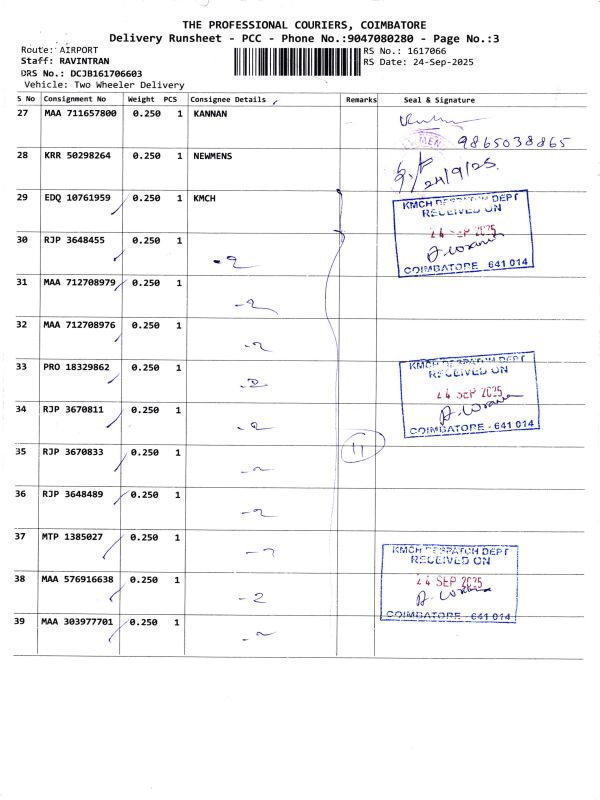 THE PROFESSIONAL COURIERS, COIMBATORE
Delivery Runsheet - PCC - Phone No.:9047080280 - Page No.:3
Route: AIRPORT
RS No.: 1617066
Staff: RAVINTRAN
RS Date: 24-Sep-2025
DRS No.: DCJB161706603
Vehicle: Two Wheeler Delivery
S No Consignment No Weight PCS Consignee Details Remarks Seal & Signature
27 MAA 711657800 0.250 1 KANNAN
9865038865
28 KRR 50298264 0.250 1 NEWMENS
24/9/25.
29 EDQ 10761959 0.250 1 KMCH
KMCH DESPATCH DEPT
RECEIVED ON
24 SEP 2025
COIMBATORE - 641 014
30 RJP 3648455 0.250 1
31 MAA 712708979 0.250 1
32 MAA 712708976 0.250 1
33 PRO 18329862 0.250 1
KMCH DESPATCH DEPT
RECEIVED ON
24 SEP 2025
COIMBATORE - 641 014
34 RJP 3670811 0.250 1
35 RJP 3670833 0.250 1
11
36 RJP 3648489 0.250 1
37 MTP 1385027 0.250 1
KMCH DESPATCH DEPT
RECEIVED ON
24 SEP 2025
COIMBATORE - 641 014
38 MAA 576916638 0.250 1
39 MAA 303977701 0.250 1